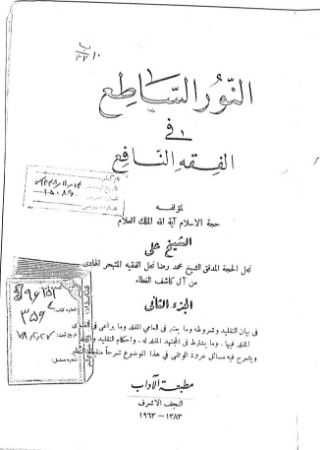 النّور السّاطع
في
الفقه النافع
لمؤلفه
حجة الاسلام آية الله الملك العلام
الشيخ علي
نجل الحجة المدقق الشيخ محمد رضا نجل الفقيه المتبحر الهادي
من آل كاشف الغطاء
الجزء الثاني
في بيان التقليد وشروطه وما يعتبر في العامي المقلد وما يراعى في الفتوى
المقلد فيها. وما يشترط في المجتهد المقلد له. واحكام التقليد
ويشرح فيه مسائل عروة الوثقى في هذا الموضوع شرحاً
مطبعة الآداب
النجف الأشرف
١٣٨٣ – ١٩٦٣